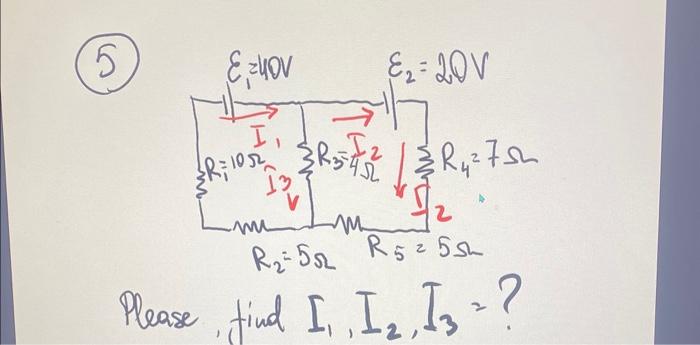 5
ε₁=40V
ε₂=20V
I₁
I₂
R₁=10Ω
R₃=4Ω
R₄=7Ω
I₃
I₂
R₂=5Ω
R₅=5Ω
Please, find I₁, I₂, I₃=?